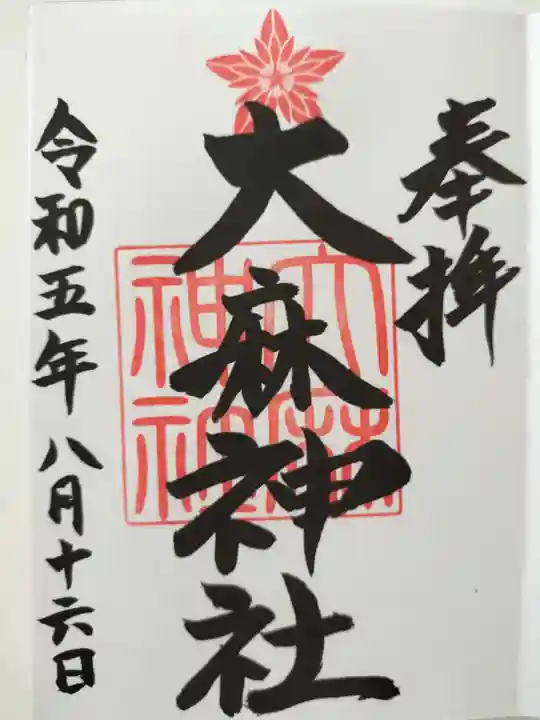 奉拝
大麻神社
大麻
神社
令和五年八月十六日